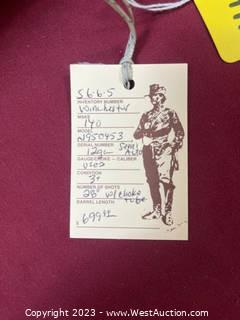 S665
INVENTORY NUMBER
Winchester
MAKE
140
MODEL
N950453
SERIAL NUMBER
12ga Semi Auto
GAUGE/CHOKE — CALIBER
Used
CONDITION
3+
NUMBER OF SHOTS
28" w/choke tube
BARREL LENGTH
$699
Copyright 2023 - www.WestAuction.com